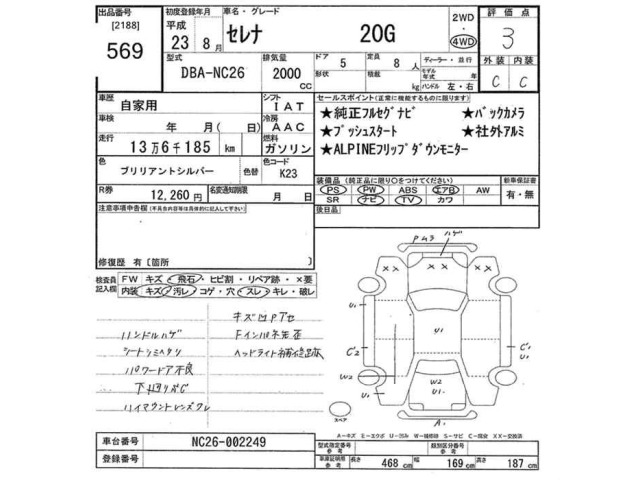 出品番号
[2188]
569
初度登録年月
平成
23年 8月
車名・グレード
セレナ 20G
2WD
・
4WD
評価点
3
外装 内装
C C
型式
DBA-NC26
排気量
2000
CC
ドア 5
形状
定員 8人
積載 kg
ディーラー・並行
モデル年式 年式
ハンドル 左・右
車歴 自家用
シフト IAT
車検 年 月( 日)
冷房 AAC
走行 13万6千185 km
燃料 ガソリン
色 ブリリアントシルバー 色替
色コード K23
R券 12,260円
名変通知期限 月 日
セールスポイント(正常に機能するものに限ります)
★純正フルセグナビ ★バックカメラ
★プッシュスタート ★社外アルミ
★ALPINEフリップダウンモニター
装備品(純正品に限り○をつけてください)
PS PW ABS エアB AW
SR ナビ TV カワ
新車保証書
有・無
後日品
注意事項申告欄(不具合内容等は具体的に記入して下さい)
修復歴 有[箇所 ]
検査員記入欄
FW キズ・飛石・ヒビ割・リペア跡・×要
内装 キズ・汚レ・コゲ・穴・スレ・キレ・破レ
ハンドルハゲ
シートシミヘタリ
パワードア不良
下廻りサビC
ハイマウントレンズワレ
ヘッドライト
ハゲ
スペア
A1
U1
C2
W2
U1
U1
W2
U1
C1
U1
A－キズ E－エクボ U－凹み W－補修跡 S－サビ C－腐蝕 XX－交換済
車台番号 NC26-002249
登録番号
型式指定番号 参考
類別区分番号 参考
車庫証明用 参考
長さ 468 cm
幅 169 cm
高さ 187 cm